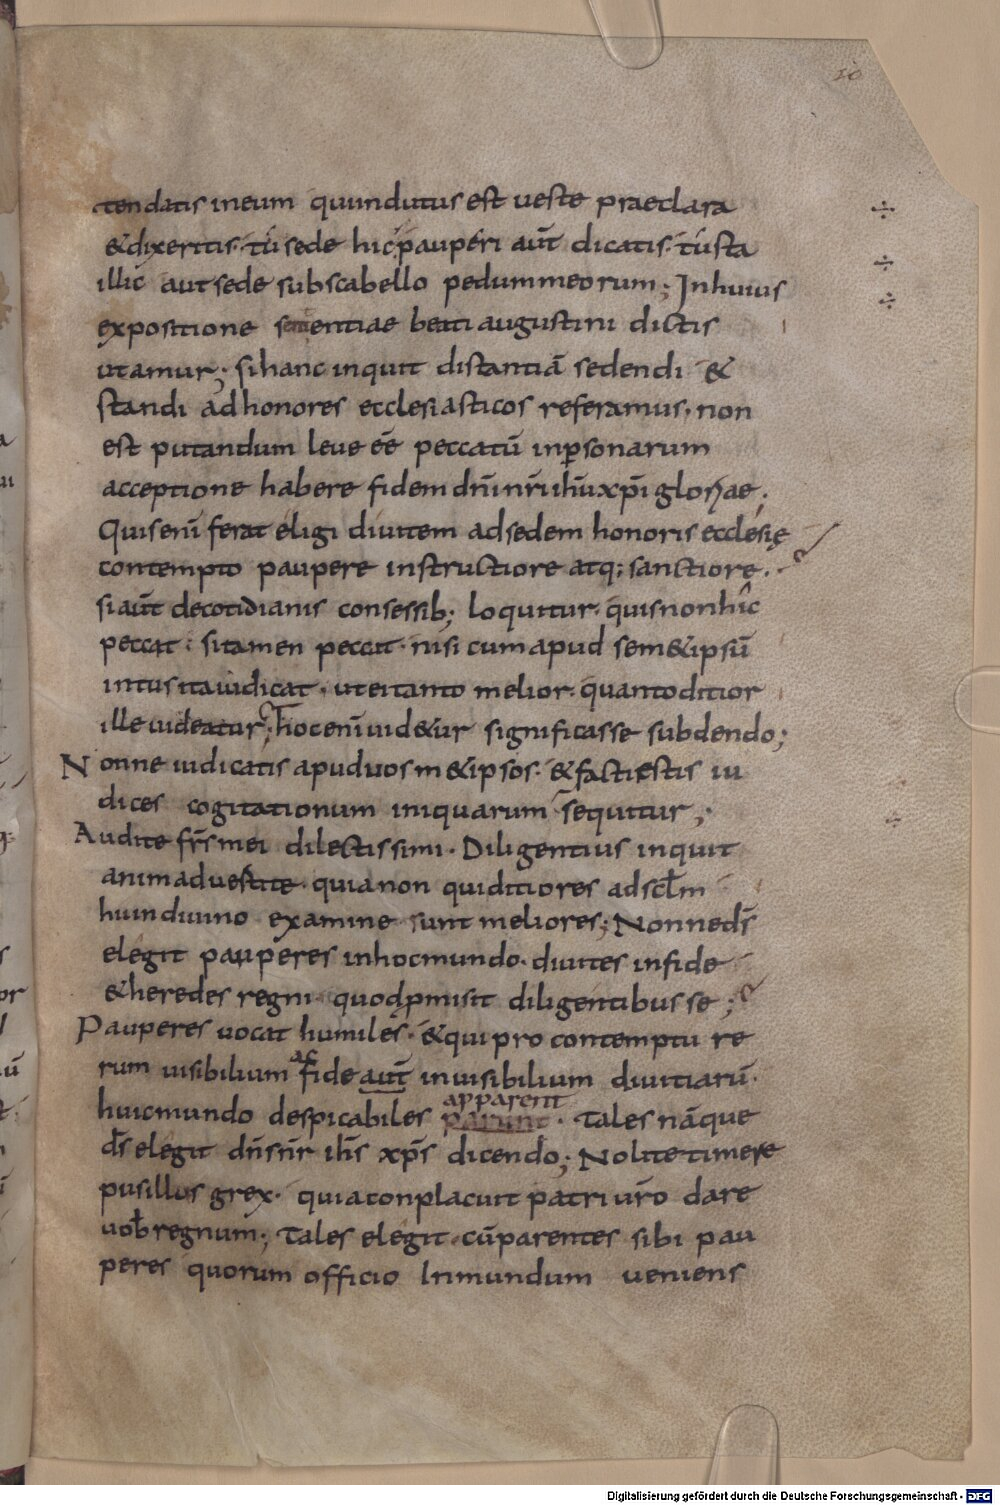 10
tendatis ineum quundutus est ueste praeclara
&dixeritis· tu sede hic· pauperi aut̄ dicatis· tu sta
illic aut sede subscabello pedummeorum; Inhuius
expositione sententiae beati augustini dictis
utamur; sihanc inquit distantiā sedendi &
standi adhonores ecclesiasticos referamus· non
est putandum leue eē peccatū inꝑsonarum
acceptione habere fidem dn̄i nr̄i ih̄u xp̄i gloriae;
Quis enī ferat eligi diuitem adsedem honoris ecclesię
contempto paupere instructiore atq; sanctiore·
si aut̄ decotidianis consessib; loquitur· quisnonhîc
peccat· sitamen peccat· nisi cumapud sem&ipsū
intus itaiudicat· uteitanto melior· quantoditior
ille uideatur; hocenī uid&ur significasse subdendo;
Nonne iudicatis apuduosm&ipsos· &factiestis iu
dices cogitationum iniquarum sequitur;
Audite fr̄s mei dilectissimi· Diligentius inquit
animaduertite· quianon quiditiores adscl̄m
huindiuino examine sunt meliores; Nonned̄s
elegit pauperes inhocmundo· diuites infide
&heredes regni· quodꝓmisit diligentibus se;
Pauperes uocat humiles· &qui pro contemptu re
rum uisibilium ac fide aut̄ inuisibilium diuitiarū·
apparent
huicmundo despicabiles parunt· Tales nāque
d̄s elegit dn̄s nr̄ ih̄s xp̄s dicendo; Nolite timere
pusillus grex· quiaconplacuit patri ur̄o dare
uob̄ regnum; Tales elegit· cū parentes sibi pau
peres quorum officio Inmundum ueniens
Digitalisierung gefördert durch die Deutsche Forschungsgemeinschaft - DFG